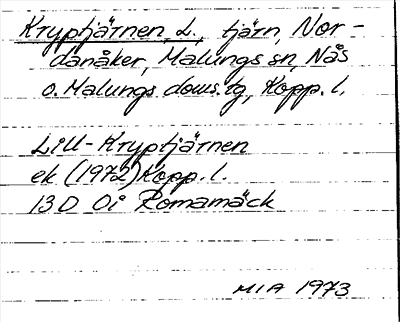 Kryptjärnen, L., tjärn, Nor-
danåker, Malungs sn, Nås
o. Malungs doms.tg, Kopp. l.
Lill-Kryptjärnen
ek (1972) Kopp. l.
13D 0i Romamäck
MIA 1973